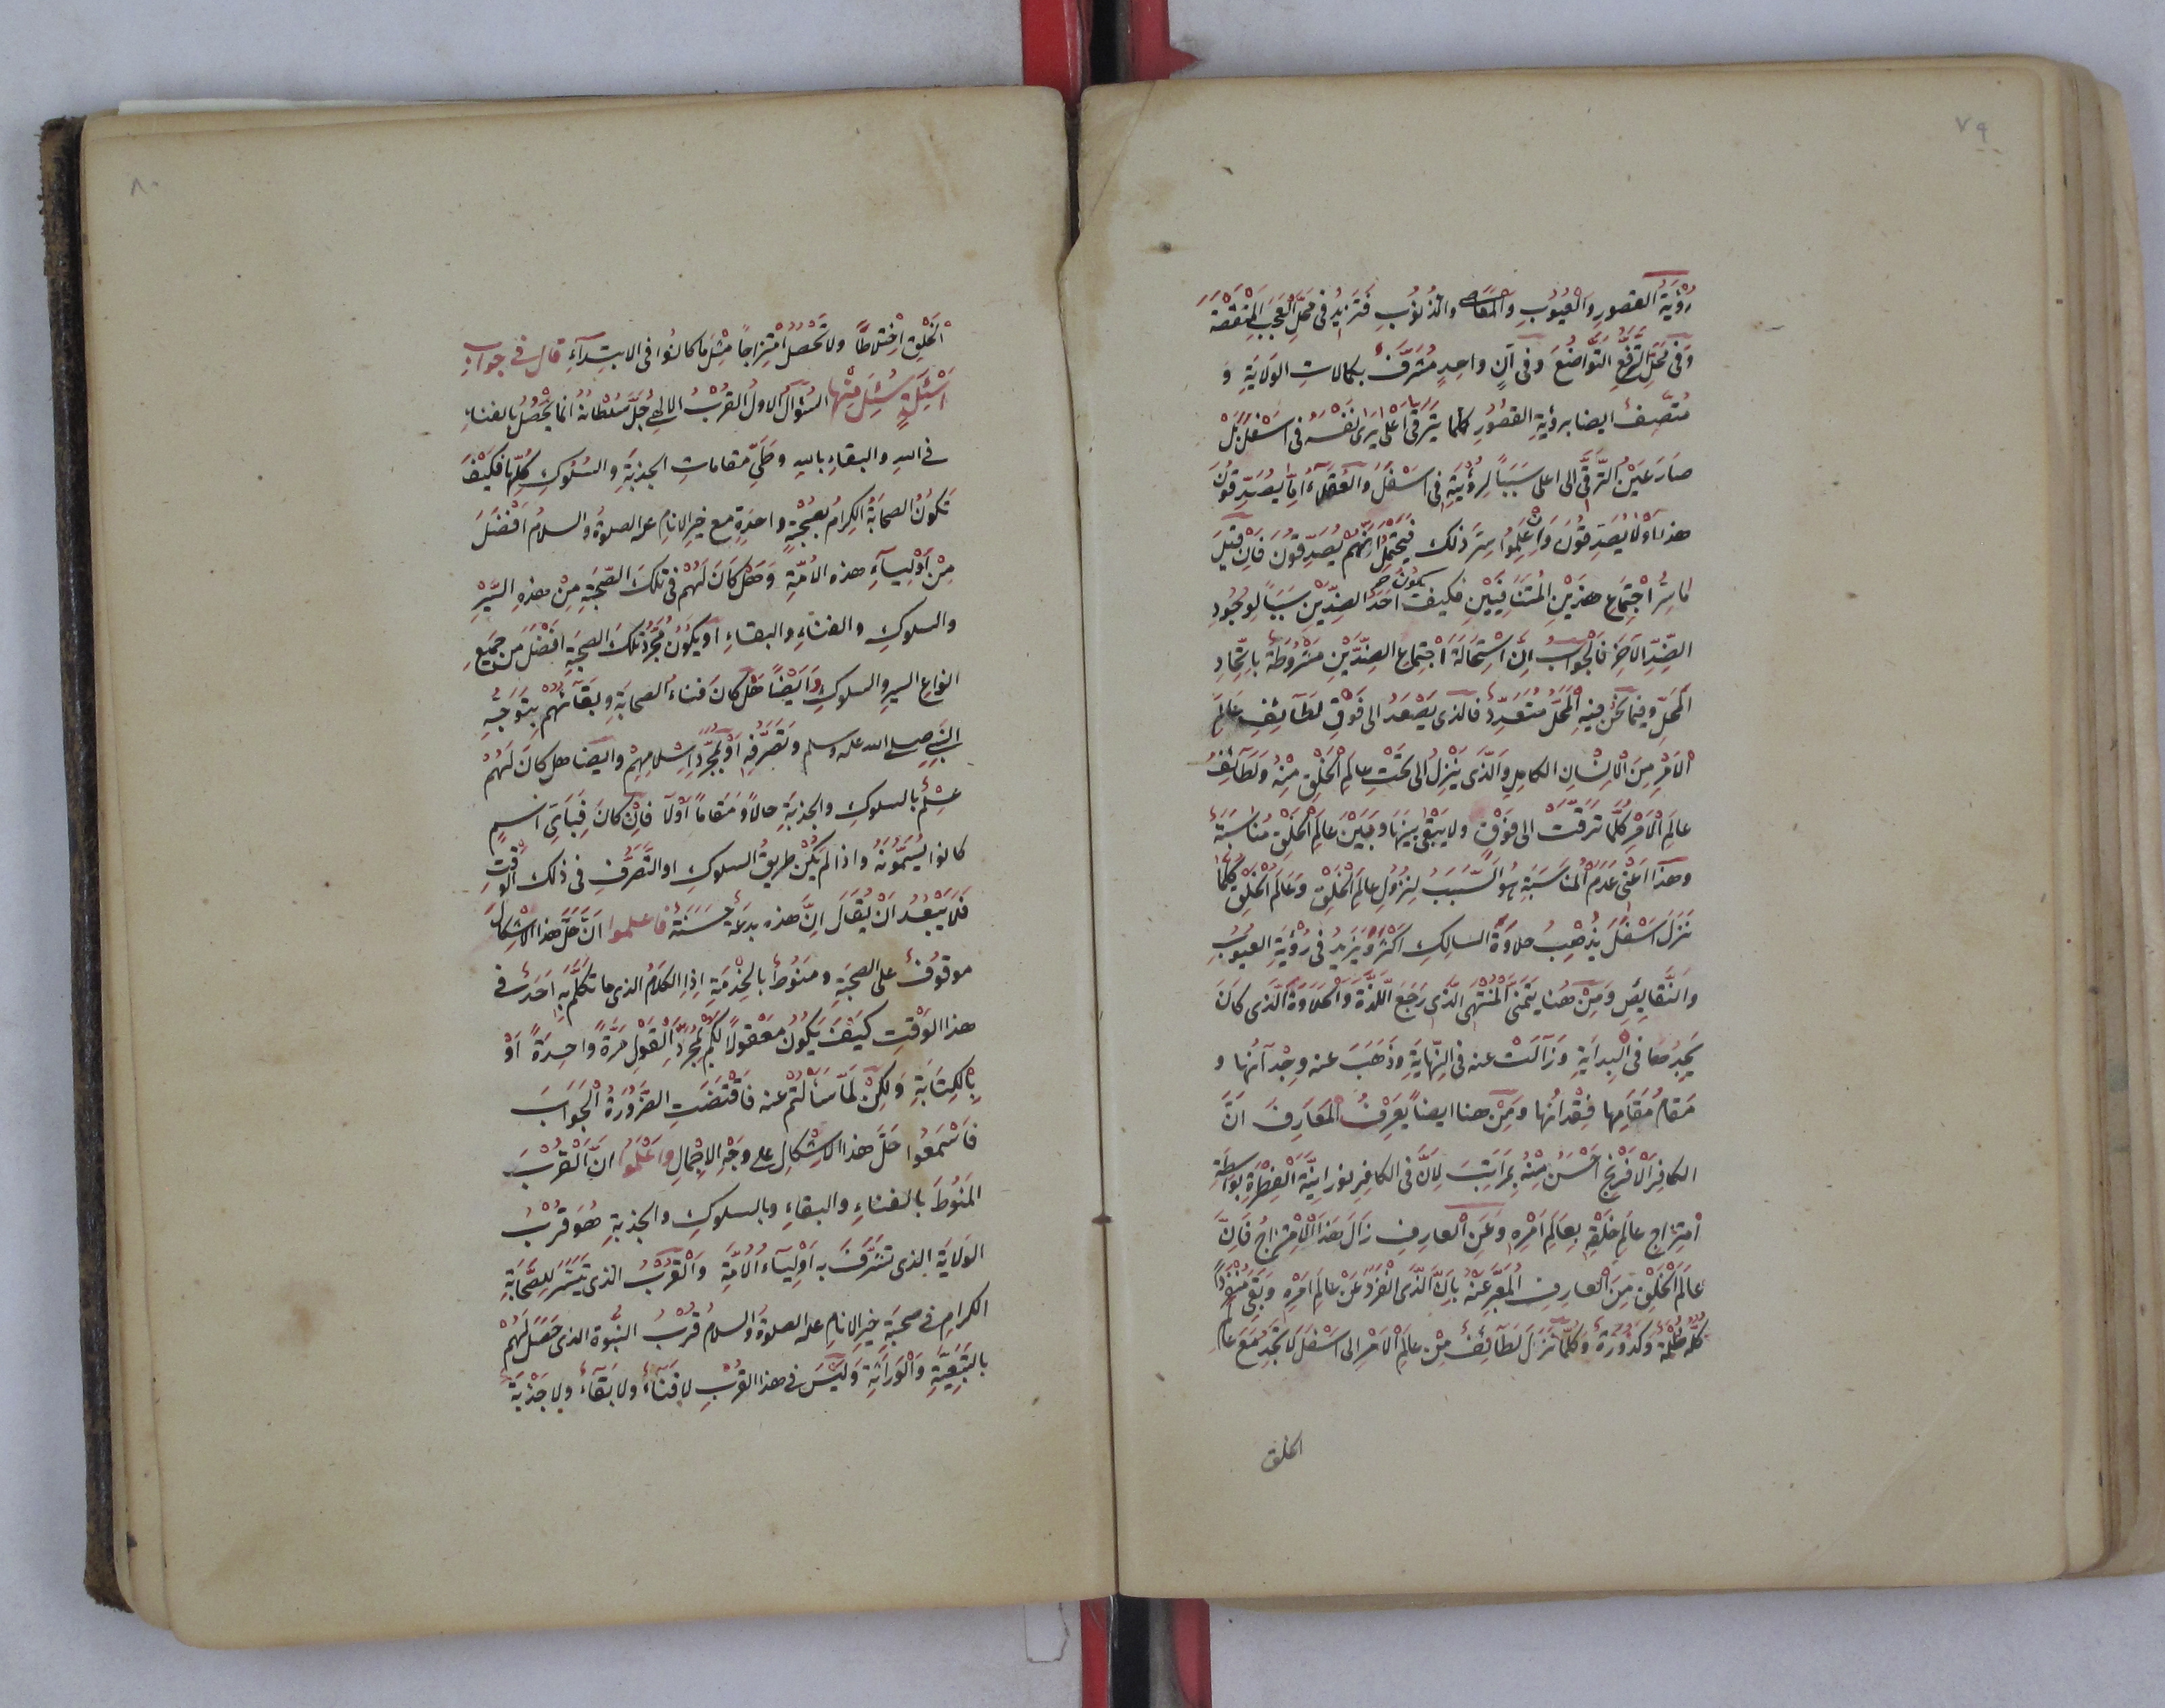 ٧٩
رُؤْيَةُ القصورِ وَالْعُيُوبِ وَالْمَعَاصِى والذُنُوبِ فَتَزِيدُ فى مَحَلِّ الْعَجَبِ الْمَنْقَصَةَ
وَفى مَحَلِّ التَّرَفُّعِ التَّوَاضُعَ وفى آنٍ واحِدٍ مُشَرَّفٌ بكمالاتِ الوَلَايَةِ وَ
مُتَّصِفٌ ايضا برؤيةِ القصُورِ كلّما يَتَرَقى اَعْلى يَرَى نَفْسَهُ فى اَسْفَلَ بَلْ
صَارَ عَيْنُ التَّرَقّى الى اعلى سَبَباً لِرُؤْيَتِهِ فى اَسْفَلَ وَالْعُقَلَآءُ اِمَّا يُصَدِّقُونَ
هذا اَوْ لَا يُصَدِّقُونَ وَاِنْ عَلِمُوا سِرَّ ذلك فَيَحْتَمِلُ اَنَّهُمْ يُصَدِّقُونَ فَاِنْ قِيلَ
مَا سِرُّ اجْتِمَاعِ هذَيْنِ الْمُتَنَافِيَيْنِ فكيف يكونُ اَحَدُ الضِدَّيْنِ سَبَباً لِوُجُودِ
الضِّدِّ الآخَرِ فَالْجَوابُ اِنَّ اسْتِحَالَةَ اجْتِماعِ الضِدَّيْنِ مَشْرُوطَةٌ بِاتِّحادِ
الْمَحَلِّ وَفِيمَا نَحْنُ فِيهِ الْمَحَلُّ مُتَعَدِّدٌ فالذى يَصْعَدُ الى فَوْقٍ لَطَآئِفُ عَالَمِ
الْاَمْرِ مِنَ الْاِنْسَانِ الكاملِ وَالَّذى يَنْزِلُ الى تَحْتٍ عالَمُ الْخَلْقِ مِنْهُ وَلَطَآئِفُ
عالَمِ الْاَمْرِ كُلَّمَا تَرَقَّتْ الى فَوْقٍ ولا يَبْقٰى بَيْنَهَا وَبَيْنَ عالَمِ الْخَلْقِ مُنَاسَبَةٌ
وهذا اَعْنى عَدَمَ الْمُنَاسَبَةِ هُوَ السَّبَبُ لِنُزُولِ عالَمِ الْخَلْقِ وَعَالَمُ الْخَلْقِ كُلَّمَا
نَزَلَ اَسْفَلَ يُذْهِبُ حلاوَةَ السَالِكِ اَكْثَرَ وَيَزِيدُ فى رُؤْيَةِ العيوبِ
وَالنَّقَايِصِ وَمِنْ هُنا يَتَمَنَّى الْمُنْتَهِى الَّذى رَجَعَ اللَّذَّةَ وَالْحَلَاوَةَ الَّذى كانَ
يَجِدُهما فى الْبِدايَةِ وَزَالَتْ عنه فى النِّهايَةِ وَذَهَبَ عنه وِجْدَانُها و
مَقامُ مُقَامِها فِقْدَانُها وَمِنْ هنا ايضاً يَعرِفُ الْعَارِفُ اَنَّ
الكافِرَ الْاَفْرَنْجِ اَحْسَنُ مِنْهُ بِمَرَاتِبَ لِاَنَّ فى الكافِرِ نورانِيَّةَ الْفِطْرَةِ بِوَاسِطَةِ
امْتِزَاجِ عالَمِ خَلْقِهِ بِعَالَمِ اَمْرِهِ وَعَنِ الْعارِفِ زَالَ هَذَا الْاِمْتِزَاجُ فَاِنَّ
عَالَمَ الْخَلْقِ مِنَ الْعارِفِ الْمُعَبَّرِ عَنْهُ بِاَنَّا الَّذى انْفَرَدَ عَنْ عالَمِ اَمْرِهِ وَبَقِىَ مُنْفَرِداً
كُلُّهُ ظُلْمَةٌ وَكُدُورَةٌ وَكُلَّمَا نَزَلَ لَطَآئِفُ مِنْ عالَمِ الْاَمْرِ الى اَسْفَلَ لَا تَجِدُ مَعَ عَالَمِ
الخلق
٨٠
الْخَلْقِ اخْتِلَاطاً ولا تَحْصُلُ امْتِزَاجاً مِثْلَ ما كانُوا فى الابتِدآءِ قال فى جوابِ
اَسْئِلَةٍ سُئِلَ مِنْها السُّؤَالُ الاولُ القُرْبُ الالهىُّ جُلَّ سُلْطَانُهُ انّما يَحْصُلُ بالفَناءِ
فى اللهِ والبقاءِ باللهِ وَطَىِّ مقاماتِ الجذبَةِ والسُلُوكِ كُلِّها فَكَيْفَ
تَكُونُ الصحابَةُ الكِرامُ بِصُحْبَةٍ واحدَةٍ مع خيرِ الانامِ عليه الصلوةُ والسلامُ اَفْضَلَ
مِنْ اَوْلِيآءِ هذه الامَّةِ وَهَلْ كَانَ لَهُمْ فى تلكَ الصُّحْبَةِ مِنْ هذهِ السَّيْرِ
والسلوكِ والفنآءِ والبقاءِ اَو يَكُونُ مُجَرَّدُ تلكَ الصحبَةِ اَفْضَلَ مِن جَميعِ
انواعِ السيرِ والسلوكِ وَاَيْضاً هَلْ كانَ فناءُ الصحابَةِ وبَقَآئُهُمْ بِتَوَجُّهِ
النبىِّ صلى الله عليه وسلم وَتَصَرُّفِهِ اَوْ بِمُجَرَّدِ اِسْلَامِهِمْ وايضا هل كانَ لَهُمْ
عِلْمٌ بالسلوكِ والجذبَةِ حالاً وَمَقَاماً اَوْ لَا فَاِنْ كانَ فَبِاَىِّ اسمٍ
كانوا يُسَمُّونَهُ واذا لَمْ يَكُنْ طريقُ السلوكِ او التَّصَرُّفِ فى ذلك الوَقْتِ
فَلَا يَبْعُدُ اَنْ يُقَالَ اِنَّ هذه بدعةٌ حَسَنَةٌ فاعلموا اَنَّ حَلَّ هذا الْاِشْكَالِ
موقوفٌ على الصحبَةِ ومَنُوطٌ بالخِدْمَةِ اِذِ الكَلَامُ الذى ما تَكَلَّمَ بِهِ اَحَدٌ فى
هذا الوَقْتِ كَيْفَ يَكُونُ مَعْقُولاً لَكُمْ بِمُجَرَّدِ الْقَوْلِ مَرَّةً واحِدَةً اَوْ
بِالكِتابَةِ وَلكِنْ لَمَّا سَاَلْتُمْ عنه فَاقْتَضَتِ الضَّرُورَةُ الْجَوَابَ
فَاسْمَعُوا حَلَّ هذا الاِشْكالِ على وَجْهِ الاِجْمالِ وَاعْلَمُوا اَنَّ الْقُرْبَ
المَنُوطَ بالفناءِ والبقاءِ وبالسلوكِ والجذبةِ هُوَ قُرْبُ
الولايَةِ الذى تَشَرَّفَ بِه اَوْلِيآءُ الْاُمَّةِ وَالْقُرْبُ الذى تَيَسَّرَ لِلصَّحَابَةِ
الكرامِ فى صحبَةِ خيرِ الانامِ عليه الصلوةُ والسلامُ قُرْبُ النبُوَّةِ الذى حَصَلَ لَهُمْ
بالتَّبَعِيَّةِ وَالْوَرَاثَةِ وَلَيْسَ فى هذا القُرْبِ لا فَنَآءٌ ولا بَقَآءٌ ولا جَذْبَةٌ